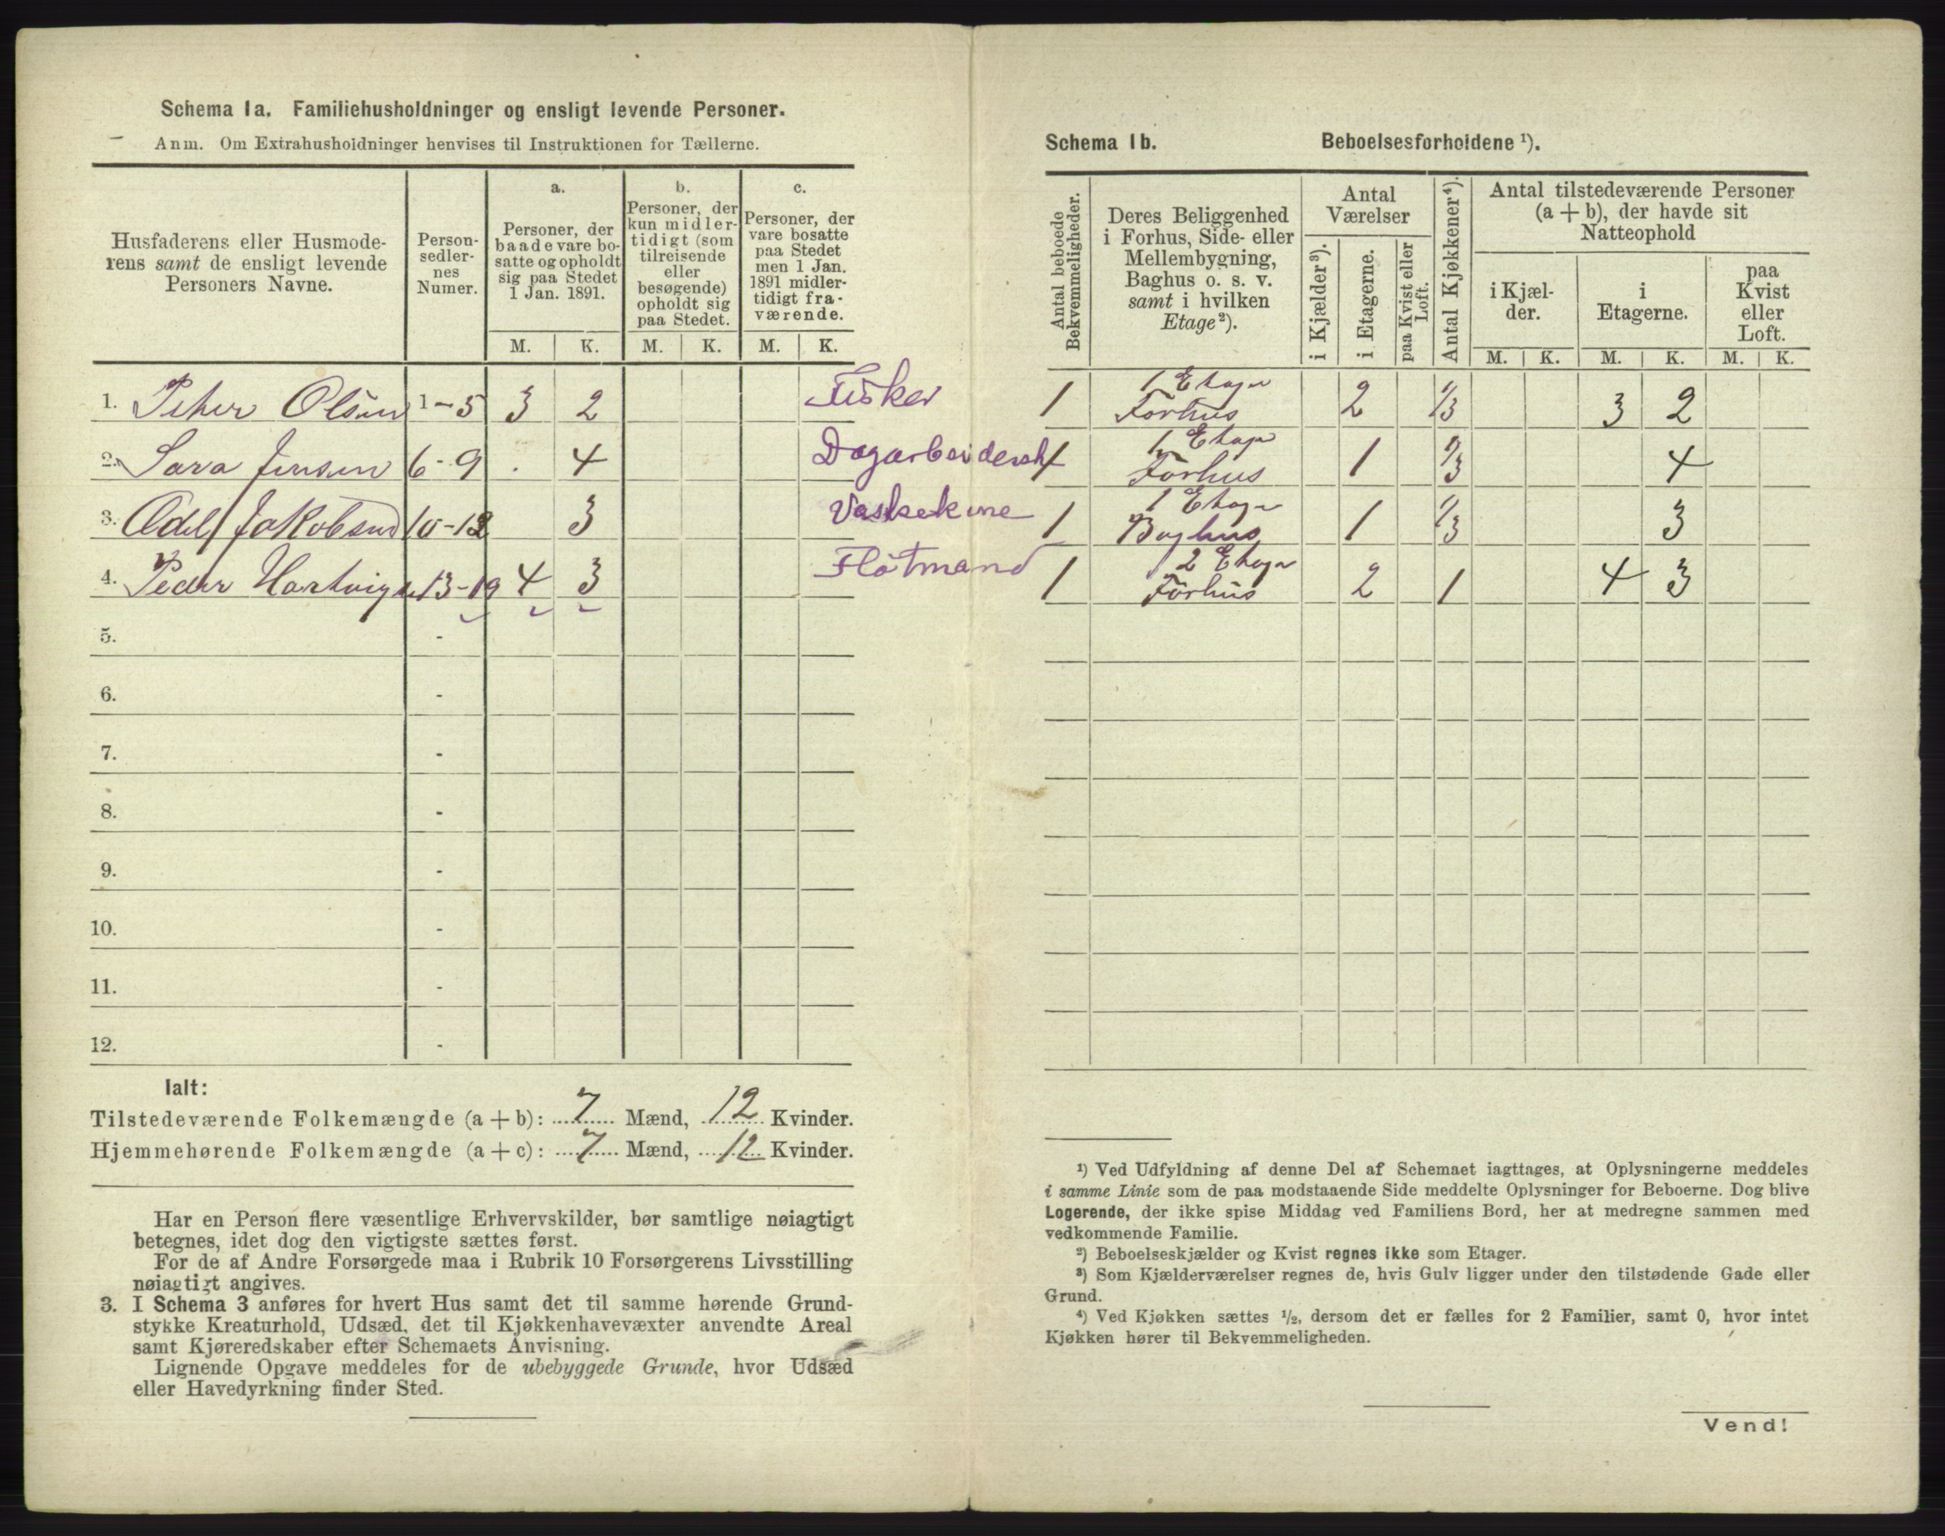 Schema 1a. Familiehusholdninger og ensligt levende Personer.
Anm. Om Extrahusholdninger henvises til Instruktionen for Tællerne.
Husfaderens eller Husmoderens samt de ensligt levende Personers Navne.
Person-sedler-nes Numer.
a.
Personer, der baade vare bosatte og opholdt sig paa Stedet 1 Jan. 1891.
b.
Personer, der kun midlertidigt (som tilreisende eller besøgende) opholdt sig paa Stedet.
c.
Personer, der vare bosatte paa Stedet men 1 Jan. 1891 midlertidigt fraværende.
M. K. M. K. M. K.
1. Peter Olsen 1-5 3 2 Fisker
2. Sara Jensen 6-9 . 4
3. Adel Jakobsen 10-12 3
4. Peder Hartvigs 13-19 4 3 Flotmand
5. -
6. -
7. -
8. -
9. -
10. -
11. -
12. -
Ialt:
Tilstedeværende Folkemængde (a+b): 7 Mænd, 12 Kvinder.
Hjemmehørende Folkemængde (a+c): 7 Mænd, 12 Kvinder.
Har en Person flere væsentlige Erhvervskilder, bør samtlige nøiagtigt
betegnes, idet dog den vigtigste sættes først.
For de af Andre Forsørgede maa i Rubrik 10 Forsørgerens Livsstilling
nøiagtigt angives.
3. I Schema 3 anføres for hvert Hus samt det til samme hørende Grund-
stykke Kreaturhold, Udsæd, det til Kjøkkenhavevæxter anvendte Areal
samt Kjøreredskaber efter Schemaets Anvisning.
Lignende Opgave meddeles for de ubebyggede Grunde, hvor Udsæd
eller Havedyrkning finder Sted.
Schema 1b. Beboelsesforholdene ¹).
Antal beboede Bekvemmeligheder.
Deres Beliggenhed i Forhus, Side- eller Mellembygning, Baghus o. s. v. samt i hvilken Etage²).
Antal Værelser
i Kjælder³).
i Etagerne.
paa Kvist eller Loft.
Antal Kjøkkener⁴).
Antal tilstedeværende Personer (a + b), der havde sit Natteophold
i Kjælder.
i Etagerne.
paa Kvist eller Loft.
M. K. M. K. M. K.
1 1 Etage Forhus 2 1/3 3 2
1 1 Etage Forhus 1 1/3 4
1 1 Etage Baghus 1 1/3 3
1 2 Etage Forhus 2 1 4 3
¹) Ved Udfyldning af denne Del af Schemaet iagttages, at Oplysningerne meddeles
i samme Linie som de paa modstaaende Side meddelte Oplysninger for Beboerne. Dog blive
Logerende, der ikke spise Middag ved Familiens Bord, her at medregne sammen med
vedkommende Familie.
²) Beboelseskjælder og Kvist regnes ikke som Etager.
³) Som Kjælderværelser regnes de, hvis Gulv ligger under den tilstødende Gade eller
Grund.
⁴) Ved Kjøkken sættes ½, dersom det er fælles for 2 Familier, samt 0, hvor intet
Kjøkken hører til Bekvemmeligheden.
Vend!